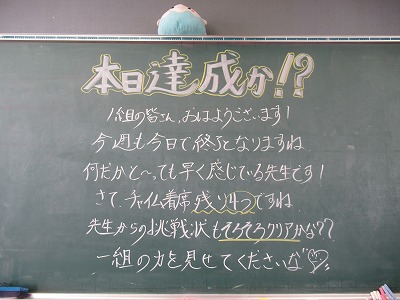 本日達成か!?
1組の皆さん、おはようございます!
今週も今日で終了となりますね
何だかと〜っても早く感じている先生です!
さて、チャイム着席残り4つですね
先生からの挑戦状もそろそろクリアかな??
一組の力を見せてくださいな♡